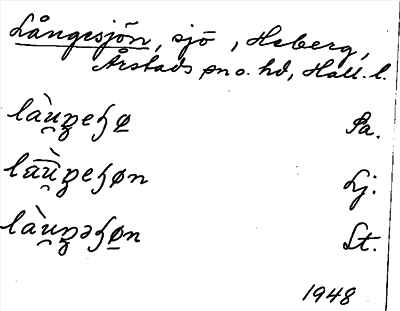 Långesjön, sjö, Heberg,
Årstads sn o. hd, Hall. l.
làu̯ŋeɧø Pa.
làu̯ŋeɧøn Lj.
làu̯ŋəɧøn St.
1948